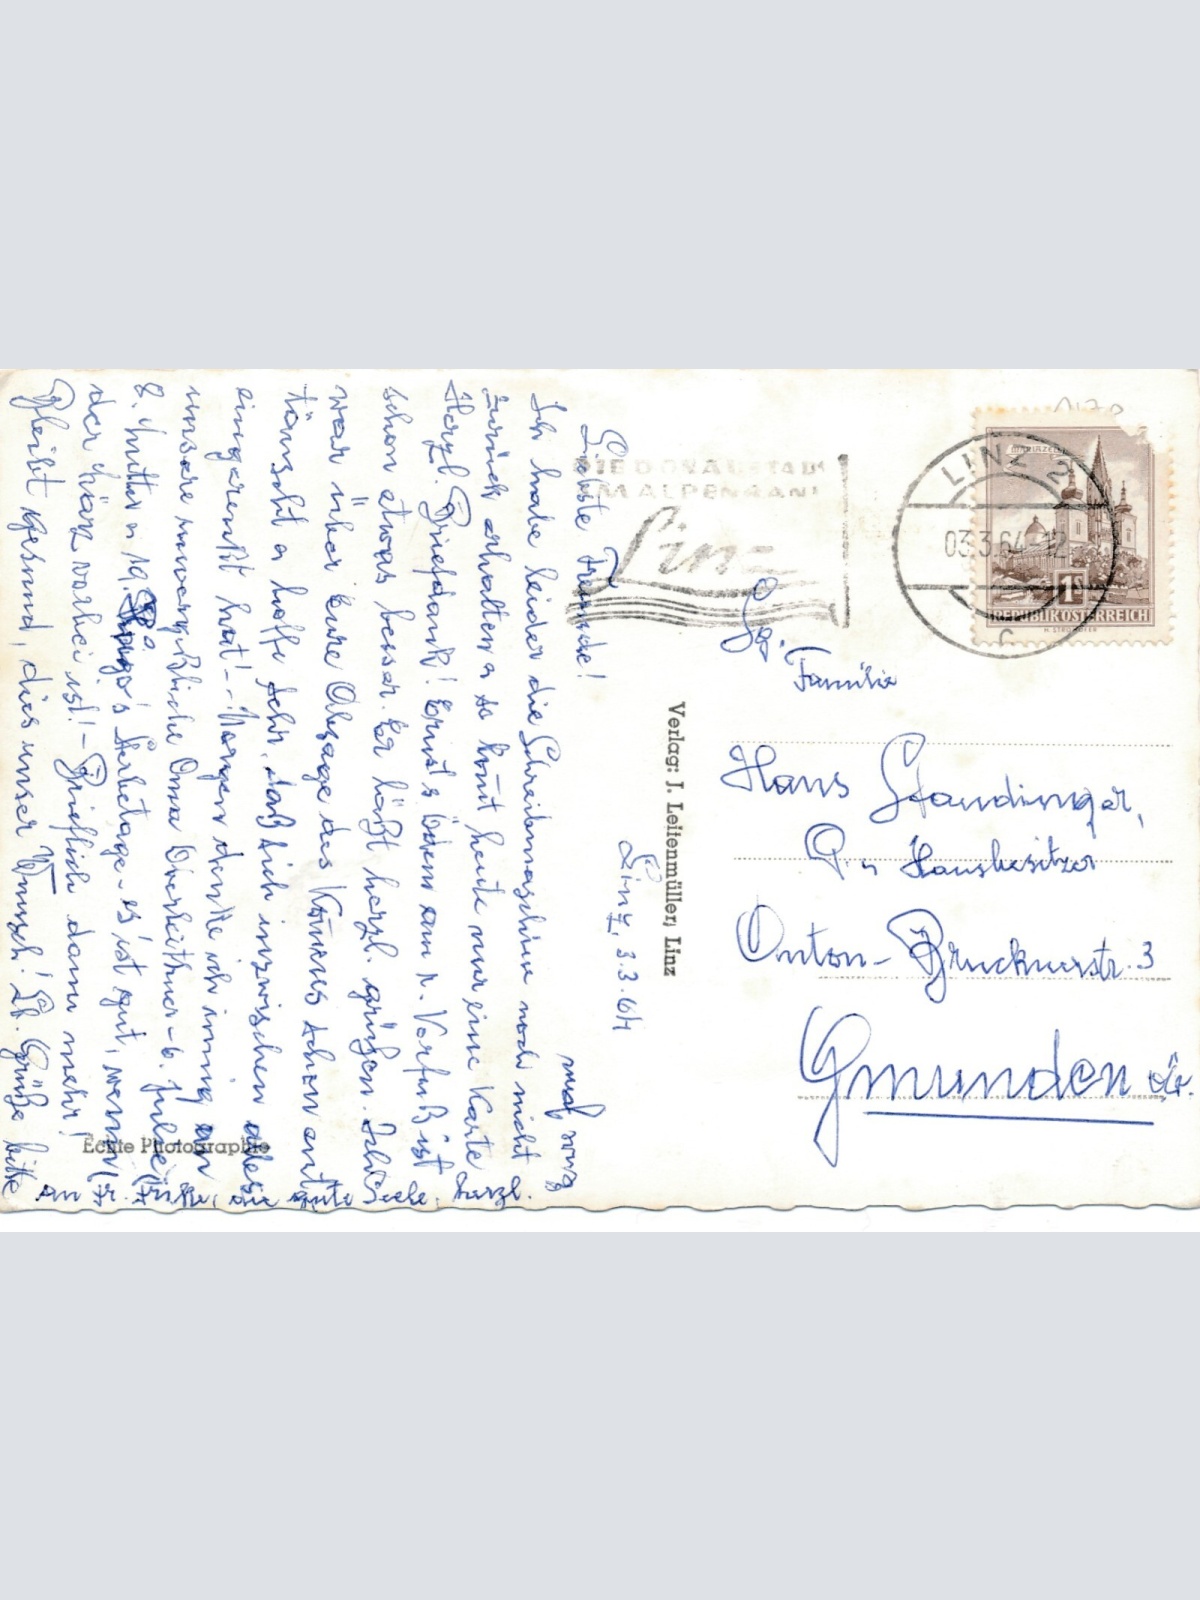 Linz, 3.3.64
Liebste Freunde!
Ich habe leider die Schreibmaschine noch nicht
zurück erhalten u so kommt heute nur eine Karte
Herzl. Briefdank! Ernst's Ödem am r. Vorfuß ist
schon etwas besser. Er läßt herzl. grüßen. Ich
war über Eure Absage des Kurses schon ent-
täuscht u hoffe sehr, daß sich inzwischen alles
eingerenkt hat! - Morgen denke ich innig an
unsere unvergeßliche Oma Oberleithner - 6.
8. Mutter u 19. Papa's Sterbetage - es ist gut, wenn
der März vorbei ist! - Brieflich dann mehr!
Bleibt gesund, dies unser Wunsch! Lb. Grüße bitte
an Fr. die gute Seele. Herzl.
DIE DONAUSTADT
IM ALPENLAND
Linz
LINZ 2
03.3.64-12
c
MARIAZELL
1
REPUBLIK ÖSTERREICH
Familie
Hans Staudinger,
u Hausbesitzer
Anton-Brucknerstr. 3
Gmunden
Verlag: J. Leitenmüller, Linz
Echte Photographie